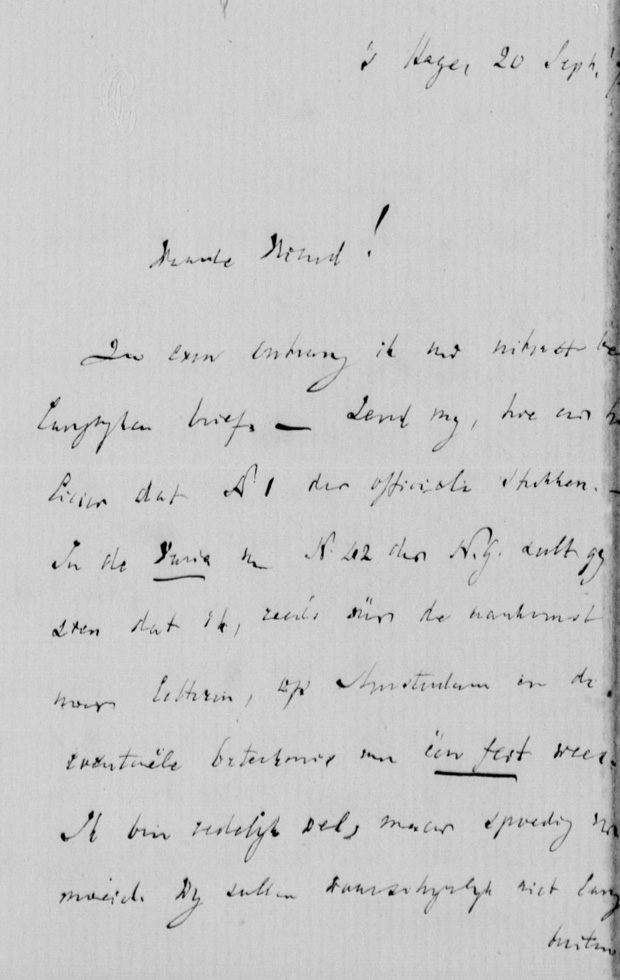 's Hage, 20 Sept.
Waarde Vriend!
Zoo even ontvang ik uw uiterst be
langryken brief. — Zend my, hoe eer h
liever dat N 1 der officiële stukken. —
In de Varia van N. 42 der N.G. zult gy
zien dat ik, reeds vóór de aankomst
uwer letteren, op Amsterdam en de
eventuëele beteekenis van één feit wees.
Ik ben redelyk wel, maar spoedig ver
moeid. Wy zullen waarschynlyk niet lang
buiten